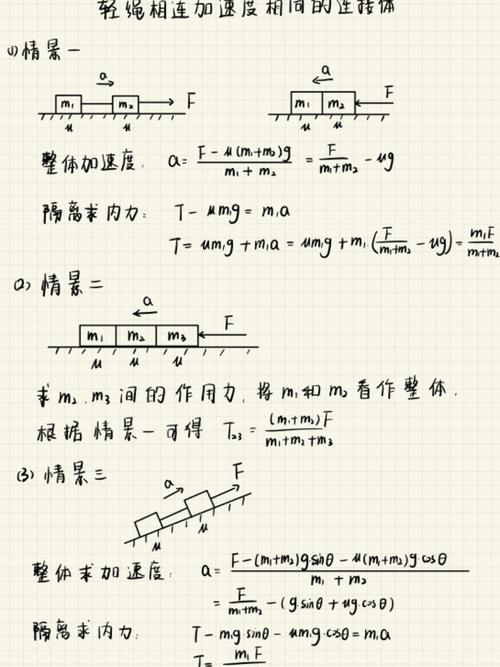 轻绳相连加速度相同的连接体
(1) 情景一
a a
m₁ m₂ F m₁ m₂ F
μ μ μ μ
整体加速度: a = (F - μ(m₁+m₂)g)/(m₁ + m₂) = F/(m₁+m₂) - μg
隔离求内力: T - μm₁g = m₁a
T = μm₁g + m₁a = μm₁g + m₁·(F/(m₁+m₂) - μg) = m₁F/(m₁+m₂)
(2) 情景二
a
m₁ m₂ m₃ F
μ μ μ
求m₂、m₃间的作用力,将m₁和m₂看作整体.
根据情景一可得 T₂₃ = (m₁+m₂)F/(m₁+m₂+m₃)
(3) 情景三
a F
μ μ
整体求加速度: a = (F-(m₁+m₂)g·sinθ - μ(m₁+m₂)g·cosθ)/(m₁ + m₂)
= F/(m₁+m₂) - (g·sinθ + μg·cosθ)
隔离求内力: T - m₁g·sinθ - μm₁g·cosθ = m₁a
T = m₁F